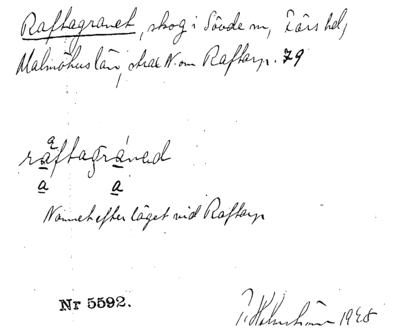 Raftagranet, skog i Sövde sn, Färs hd,
Malmöhus län, strax N. om Raftarp. 79
a
raftagrànad
a a
Namnet efter läget vid Raftarp
Nr 5592.
1948